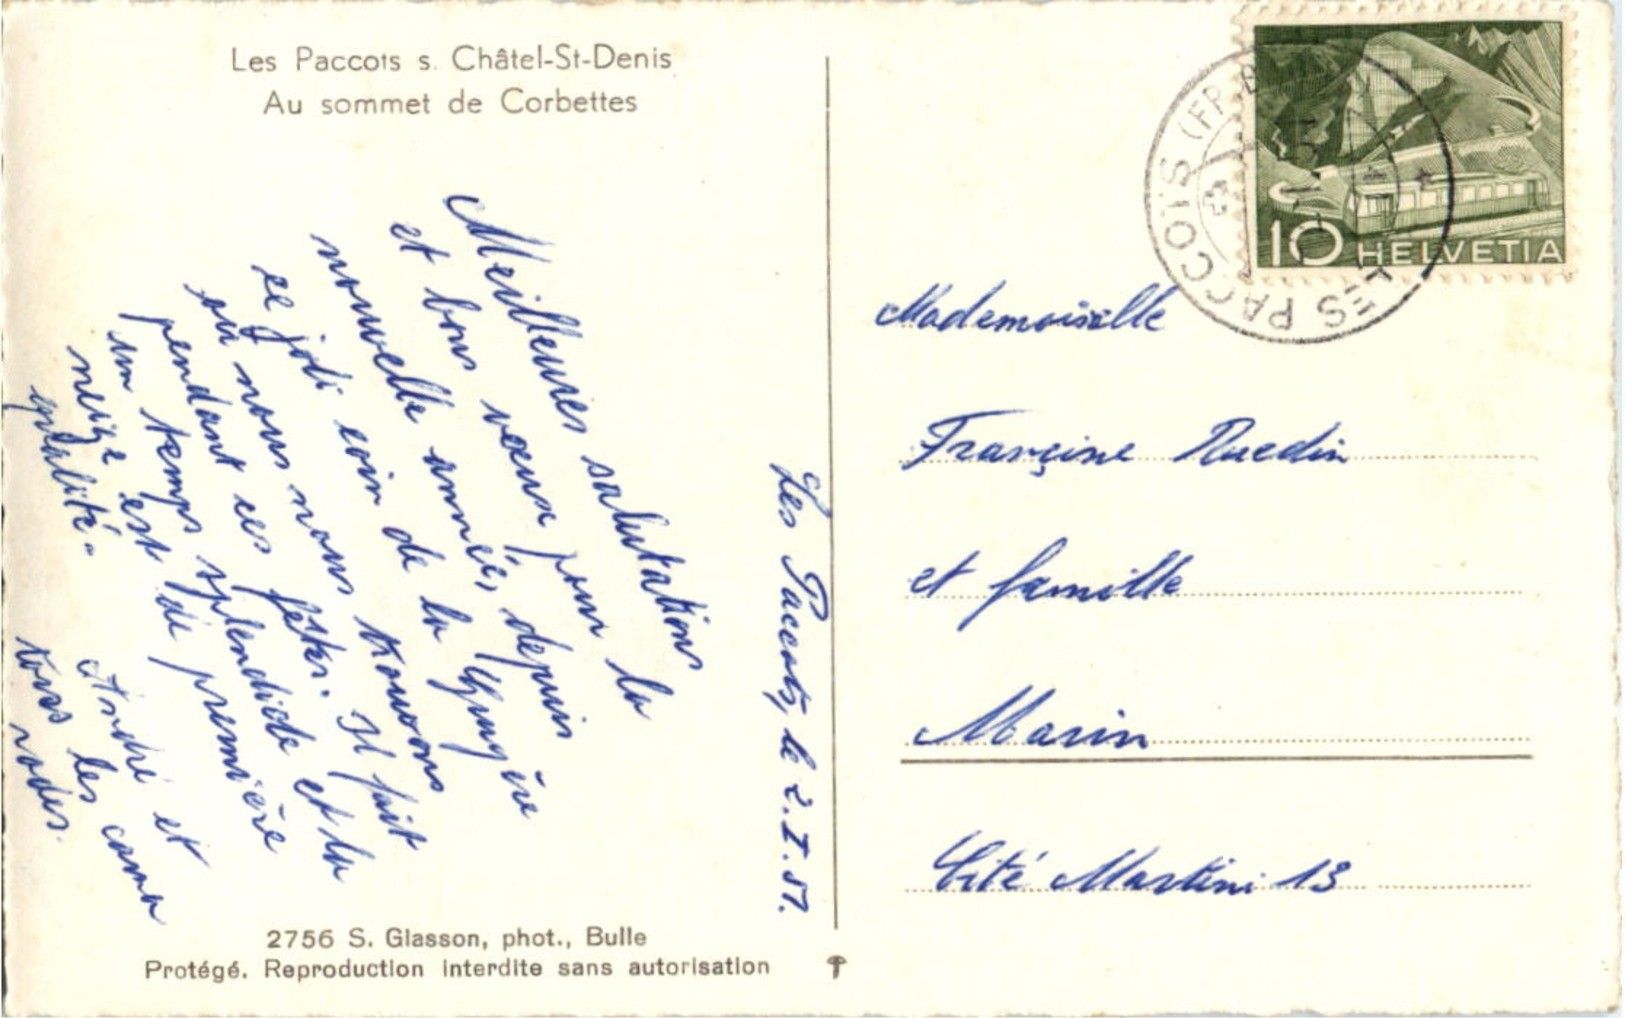 Les Paccots s. Châtel-St-Denis
Au sommet de Corbettes
Meilleures salutations
et bons vœux pour la
nouvelle année, depuis
ce joli coin de la Gruyère
où nous nous trouvons
pendant ces fêtes. Il fait
un temps splendide et la
neige est de première
qualité.
André et
tous les cama
rades.
Les Paccots, le 2.I.51.
2756 S. Glasson, phot., Bulle
Protégé. Reproduction interdite sans autorisation
LES PACCOTS (FRIB
10 HELVETIA
Mademoiselle
Françine Ruedin
et famille
Marin
Cité Martini 13